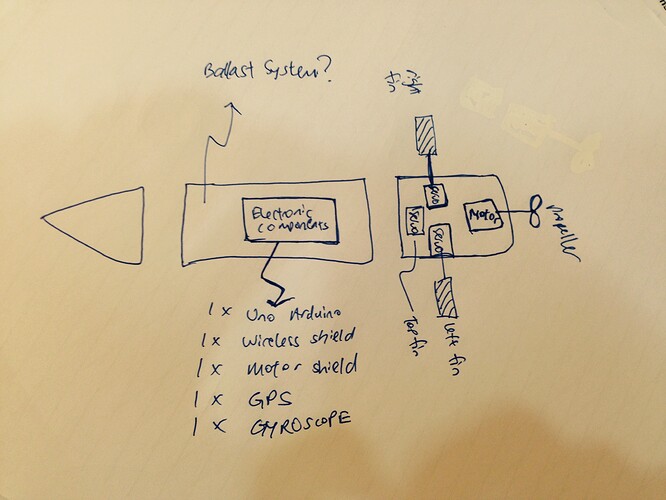 Ballast System?
right
fin
Electronic
components
servo
servo
servo
Motor
Propeller
Top fin
Left fin
1x Uno Arduino
1x wireless shield
1x motor shield
1x GPS
1x GYROSCOPE